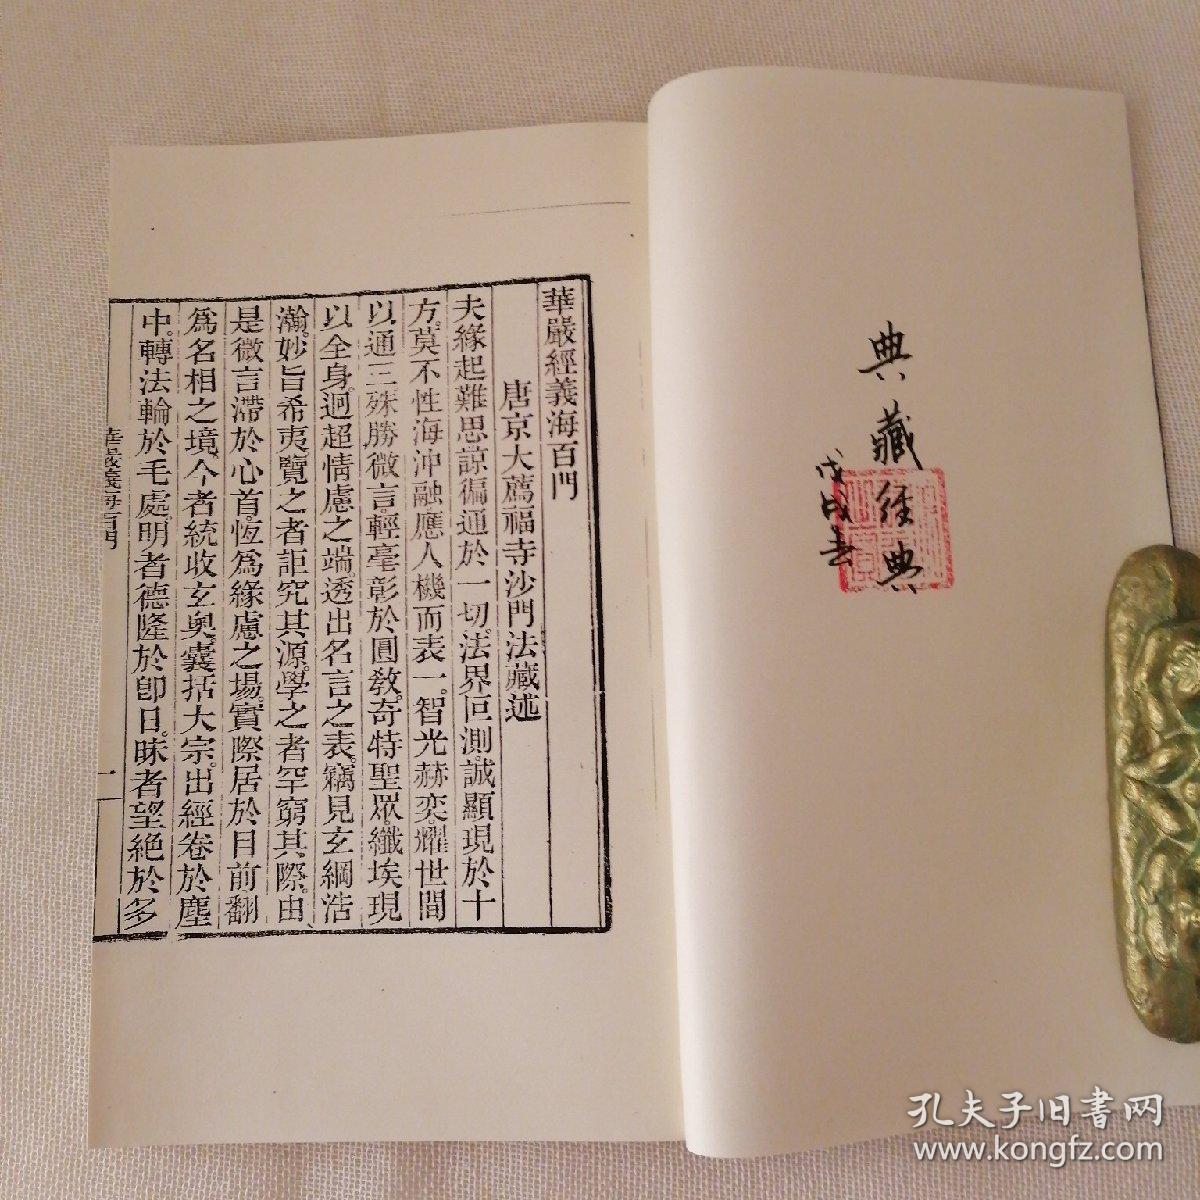 典藏经典
戊戌春
華嚴經義海百門
唐京大薦福寺沙門法藏述
夫緣起難思。諒徧通於一切。法界叵測。誠顯現於十
方。莫不性海沖融。應人機而表一。智光赫奕。耀世間
以通三。殊勝微言。輕毫彰於圓敎。奇特聖眾。纖埃現
以全身。迥超情慮之端。透出名言之表。竊見玄綱浩
瀚。妙旨希夷。覽之者詎究其源。學之者罕窮其際。由
是微言滯於心首。恆爲緣慮之場。實際居於目前。翻
爲名相之境。今者統收玄奧。囊括大宗。出經卷於塵
中。轉法輪於毛處。明者德隆於卽日。昧者望絕於多
華嚴義海百門
一
孔夫子旧書网
www.kongfz.com